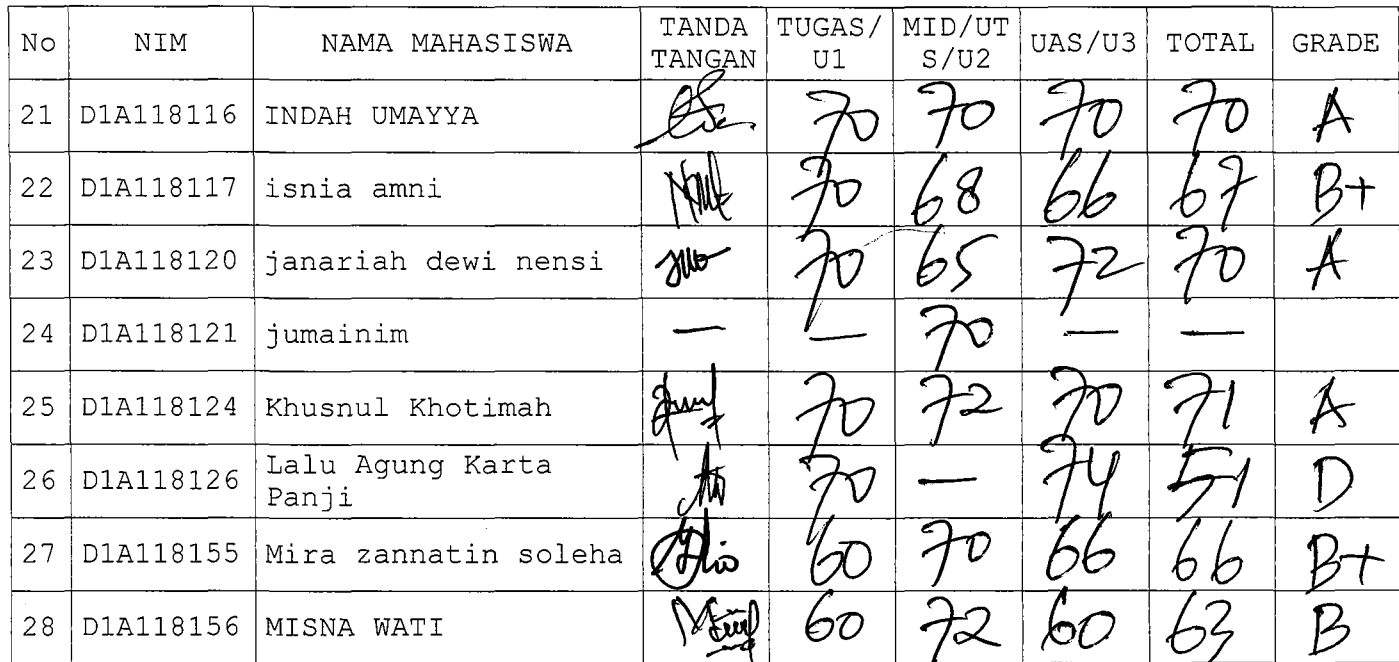 No NIM NAMA MAHASISWA TANDA TANGAN TUGAS/U1 MID/UTS/U2 UAS/U3 TOTAL GRADE
21 D1A118116 INDAH UMAYYA 70 70 70 70 A
22 D1A118117 isnia amni 70 68 66 67 B+
23 D1A118120 janariah dewi nensi 70 65 72 70 A
24 D1A118121 jumainim — — 70 — —
25 D1A118124 Khusnul Khotimah 70 72 70 71 A
26 D1A118126 Lalu Agung Karta Panji 70 — 74 51 D
27 D1A118155 Mira zannatin soleha 60 70 66 66 B+
28 D1A118156 MISNA WATI 60 72 60 63 B